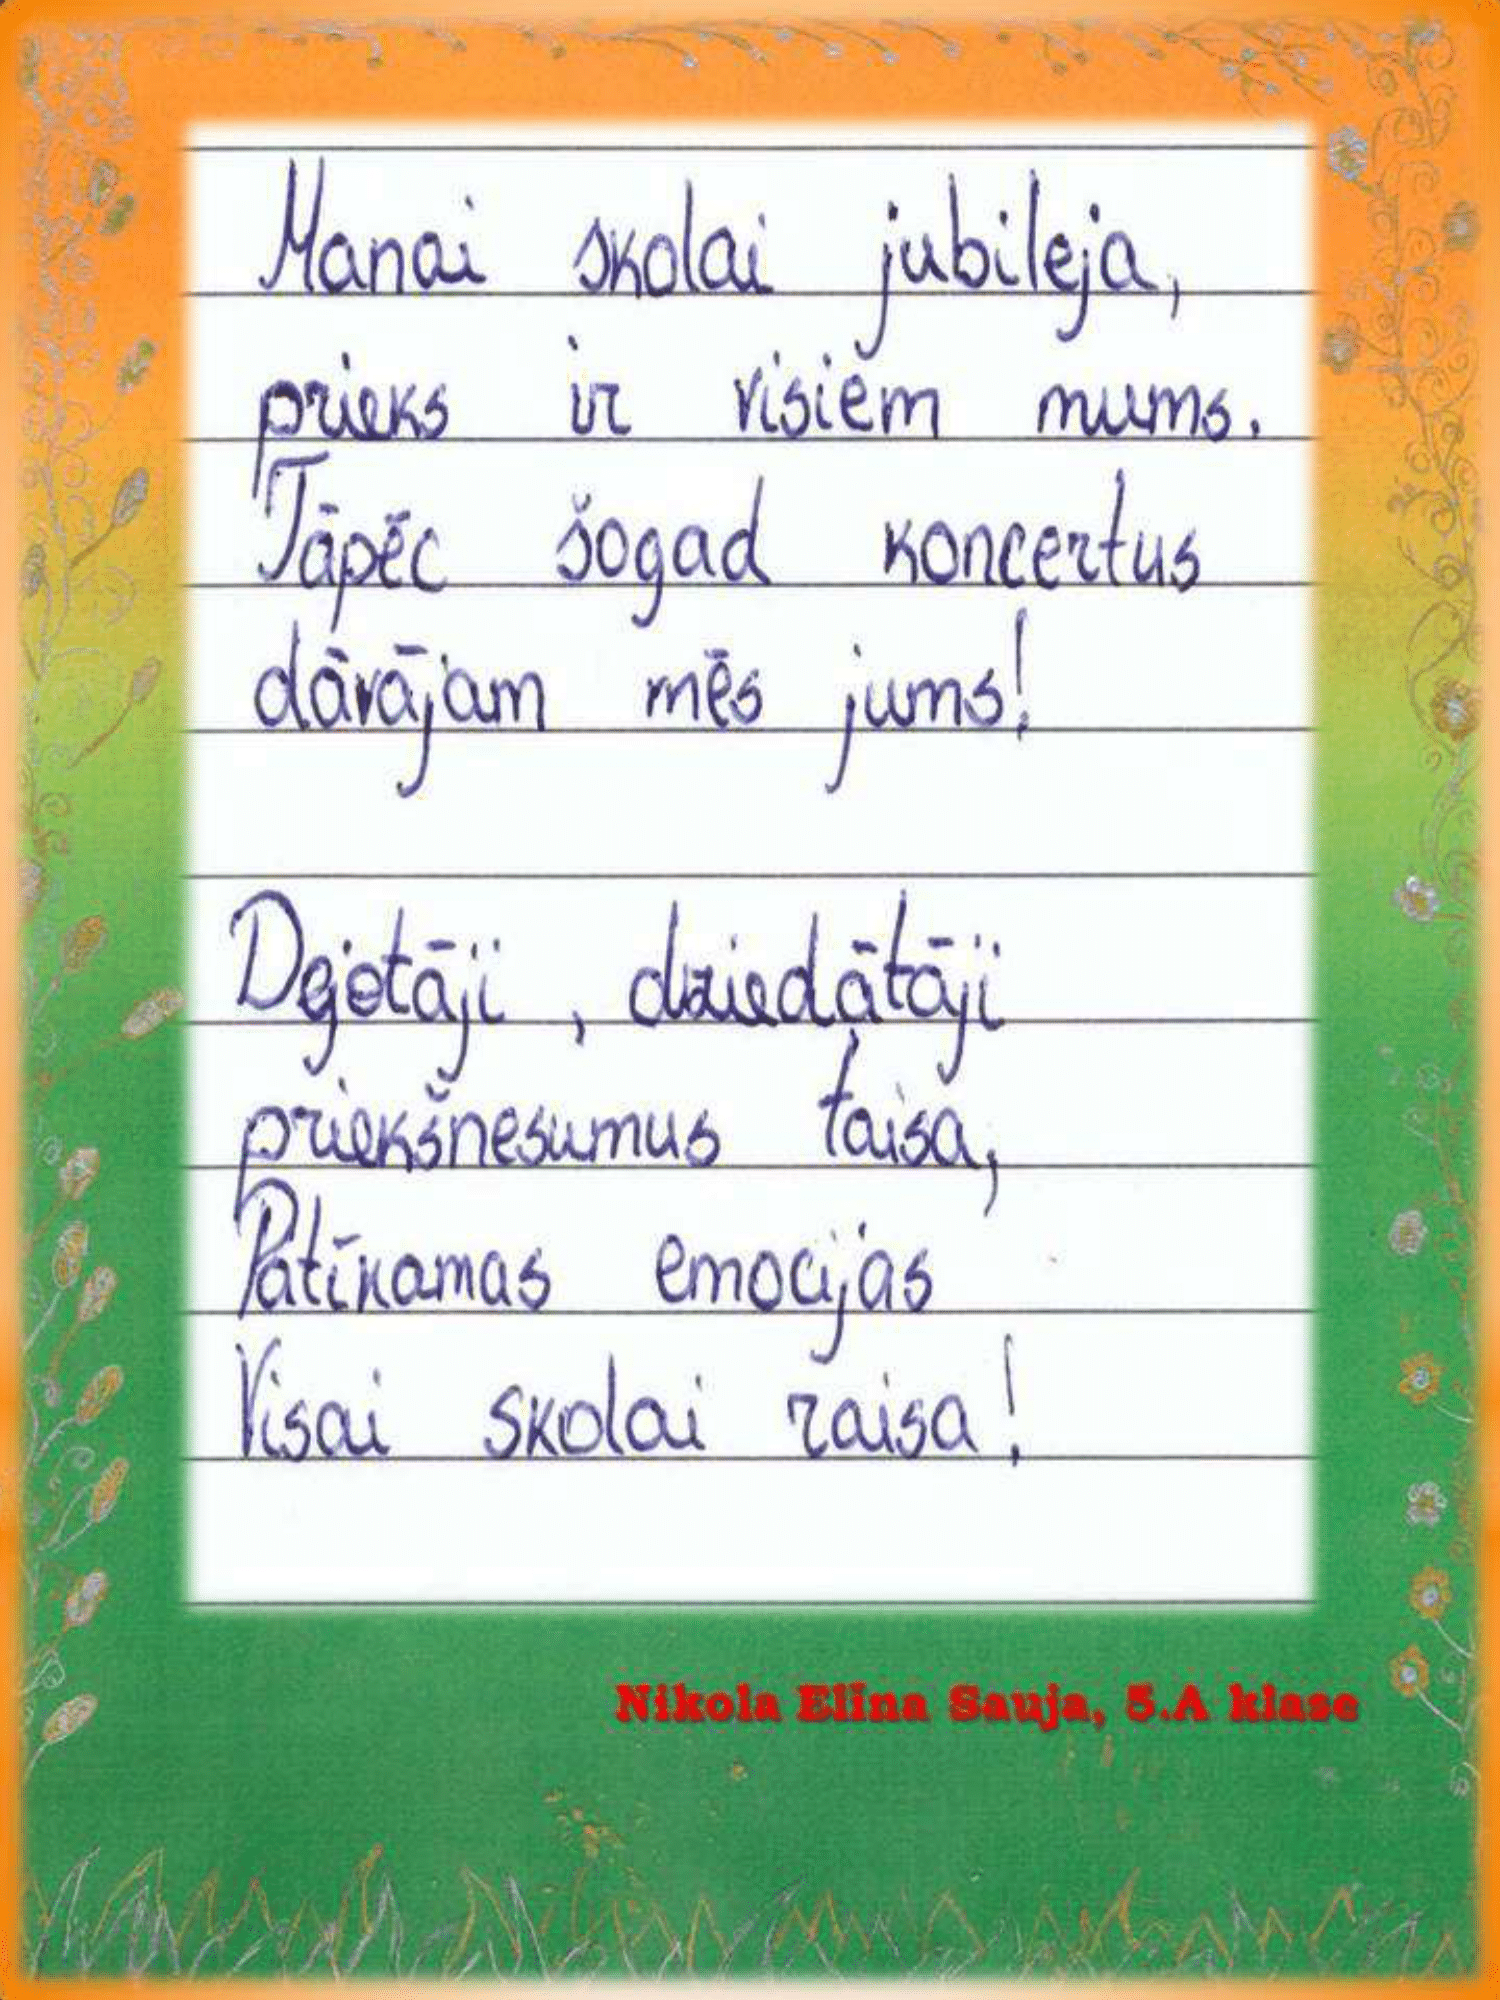 Manai skolai jubileja,
prieks ir visiem mums.
Tāpēc šogad koncertus
dāvājam mēs jums!
Dejotāji, dziedātāji
priekšnesumus taisa,
Patīkamas emocijas
Visai skolai raisa!
Nikola Elīna Sauja, 5.A klase